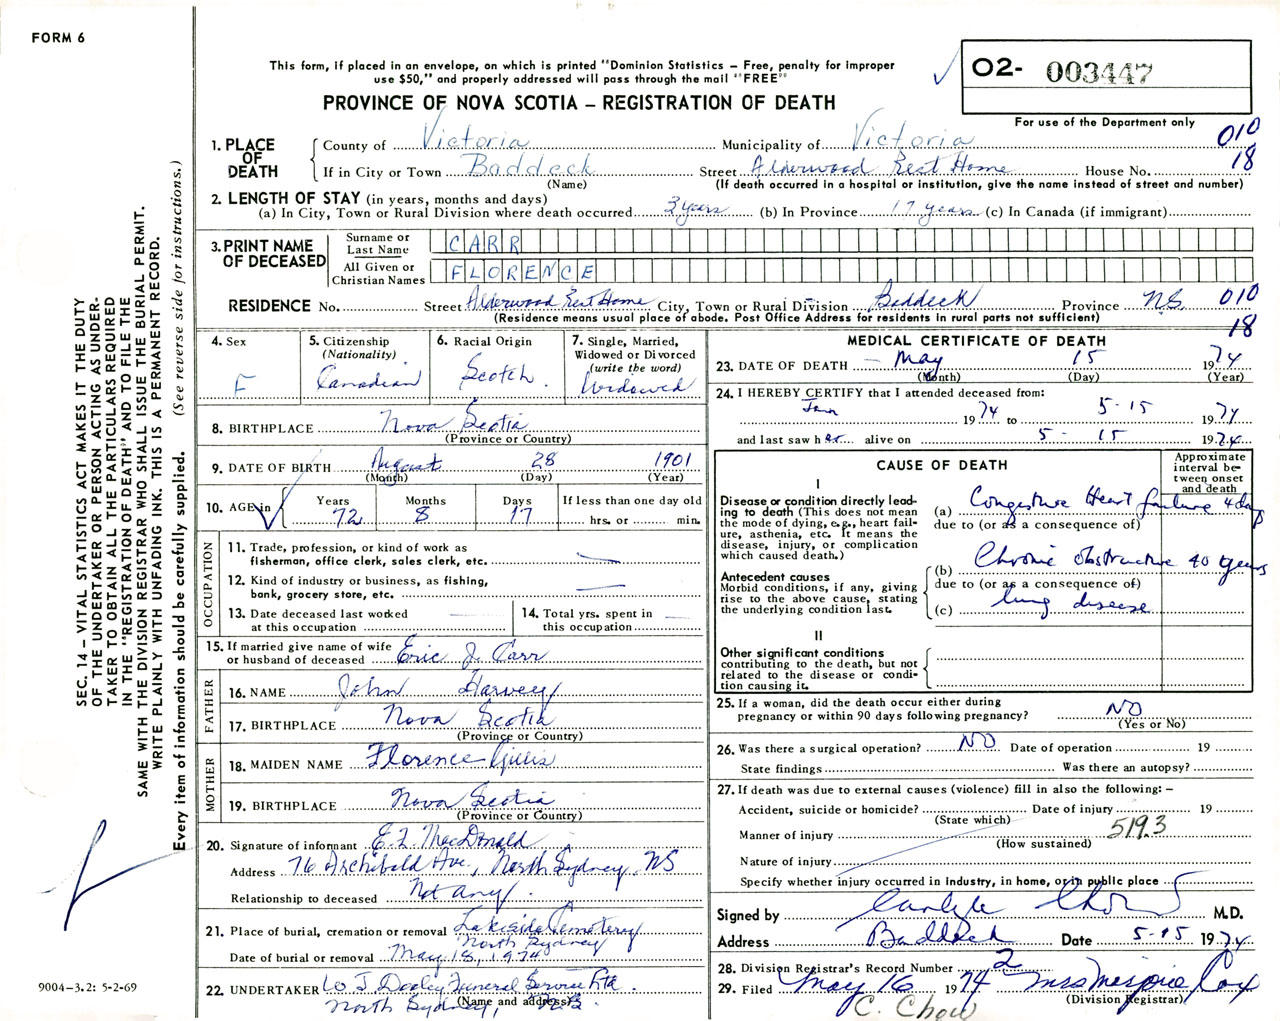 FORM 6
This form, if placed in an envelope, on which is printed "Dominion Statistics – Free, penalty for improper
use $50," and properly addressed will pass through the mail "FREE"
PROVINCE OF NOVA SCOTIA – REGISTRATION OF DEATH
O2- 003447
For use of the Department only
010
18
1. PLACE OF DEATH
County of Victoria Municipality of Victoria
If in City or Town Baddeck Street Alderwood Rest Home House No.
(Name) (If death occurred in a hospital or institution, give the name instead of street and number)
2. LENGTH OF STAY (in years, months and days)
(a) In City, Town or Rural Division where death occurred 3 years (b) In Province 17 years (c) In Canada (if immigrant)
3. PRINT NAME OF DECEASED
Surname or Last Name CARR
All Given or Christian Names FLORENCE
RESIDENCE No. Street Alderwood Rest Home City, Town or Rural Division Baddeck Province N.S. 010
(Residence means usual place of abode. Post Office Address for residents in rural parts not sufficient)
18
4. Sex F
5. Citizenship (Nationality) Canadian
6. Racial Origin Scotch.
7. Single, Married, Widowed or Divorced (write the word) Widowed
8. BIRTHPLACE Nova Scotia
(Province or Country)
9. DATE OF BIRTH August 28 1901
(Month) (Day) (Year)
10. AGE in Years 72 Months 8 Days 17 If less than one day old hrs. or min.
OCCUPATION
11. Trade, profession, or kind of work as
fisherman, office clerk, sales clerk, etc. —
12. Kind of industry or business, as fishing,
bank, grocery store, etc. —
13. Date deceased last worked
at this occupation —
14. Total yrs. spent in
this occupation —
15. If married give name of wife
or husband of deceased Eric J. Carr
FATHER
16. NAME John Harvey
17. BIRTHPLACE Nova Scotia
(Province or Country)
MOTHER
18. MAIDEN NAME Florence Gillis
19. BIRTHPLACE Nova Scotia
(Province or Country)
20. Signature of informant E. L. MacDonald
Address 76 Archibald Ave., North Sydney, NS
Relationship to deceased Not any.
21. Place of burial, cremation or removal Lakeside Cemetery
North Sydney
Date of burial or removal May 18, 1974
22. UNDERTAKER W J Dooley Funeral Service Ltd.
North Sydney, N.S.
(Name and address)
MEDICAL CERTIFICATE OF DEATH
23. DATE OF DEATH – May 15 1974
(Month) (Day) (Year)
24. I HEREBY CERTIFY that I attended deceased from:
Jan 1974 to 5-15 1974
and last saw her alive on 5-15 1974
CAUSE OF DEATH
Approximate interval between onset and death
I
Disease or condition directly lead-
ing to death (This does not mean
the mode of dying, e.g., heart fail-
ure, asthenia, etc. It means the
disease, injury, or complication
which caused death.)
(a) Congestive Heart failure 4 days
due to (or as a consequence of)
Antecedent causes
Morbid conditions, if any, giving
rise to the above cause, stating
the underlying condition last.
(b) Chronic obstructive 40 years
due to (or as a consequence of)
(c) lung disease
II
Other significant conditions
contributing to the death, but not
related to the disease or condi-
tion causing it.
25. If a woman, did the death occur either during
pregnancy or within 90 days following pregnancy? NO
(Yes or No)
26. Was there a surgical operation? NO Date of operation 19
State findings Was there an autopsy?
27. If death was due to external causes (violence) fill in also the following: –
Accident, suicide or homicide? Date of injury 19
(State which)
Manner of injury 519.3
(How sustained)
Nature of injury
Specify whether injury occurred in industry, in home, or in public place
Signed by Carlyle Chow M.D.
Address Baddeck Date 5-15 1974
28. Division Registrar's Record Number 2
29. Filed May 16 1974 Mrs Marjorie Cox
(Division Registrar)
C. Chow
SEC. 14 – VITAL STATISTICS ACT MAKES IT THE DUTY
OF THE UNDERTAKER OR PERSON ACTING AS UNDER-
TAKER TO OBTAIN ALL THE PARTICULARS REQUIRED
IN THE "REGISTRATION OF DEATH" AND TO FILE THE
SAME WITH THE DIVISION REGISTRAR WHO SHALL ISSUE THE BURIAL PERMIT.
WRITE PLAINLY WITH UNFADING INK. THIS IS A PERMANENT RECORD.
Every item of information should be carefully supplied. (See reverse side for instructions.)
9004-3.2: 5-2-69